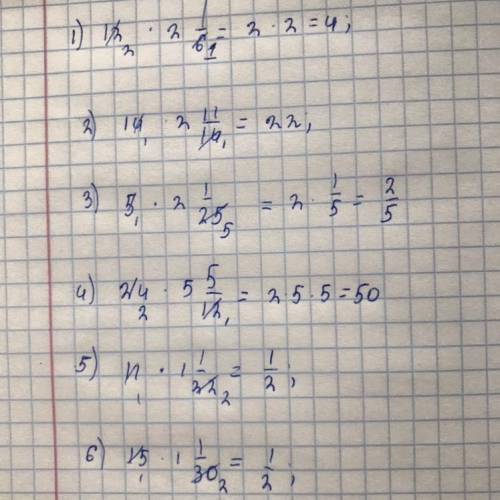 1) 12 2 · 2 1/6 1 = 2 · 2 = 4;
2) 14 1 · 2 11/14 1 = 22,
3) 5 1 · 2 1/25 5 = 2 · 1/5 = 2/5
4) 24 2 · 5 5/12 1 = 25 · 5 = 50
5) 11 1 · 1 1/22 2 = 1/2;
6) 15 1 · 1 1/30 2 = 1/2;